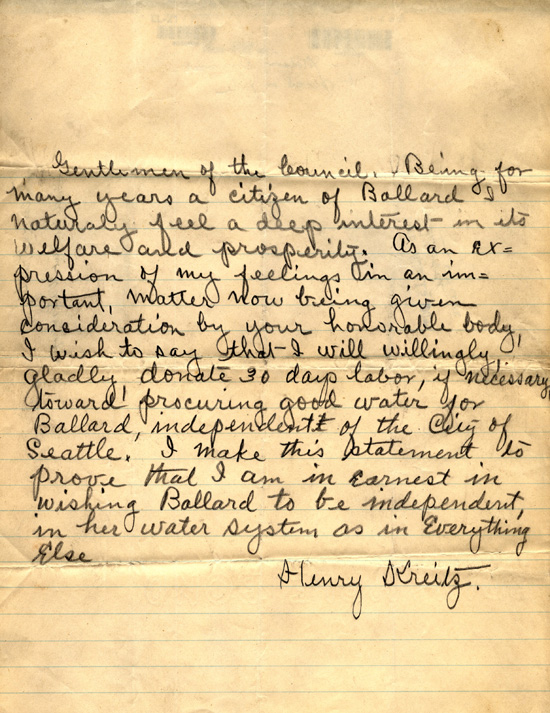 Gentlemen of the Council. Being for
many years a citizen of Ballard I
naturaly feel a deep interest in its
welfare and prosperity. As an ex=
pression of my feelings in an im=
portant, matter now being given
consideration by your honorable body,
I wish to say that I will willingly,
gladly donate 30 days labor, if necessary,
toward procuring good water for
Ballard, independent of the City of
Seattle. I make this statement to
prove that I am in earnest in
wishing Ballard to be independent,
in her water system as in Everything
Else
Henry Kreitz.